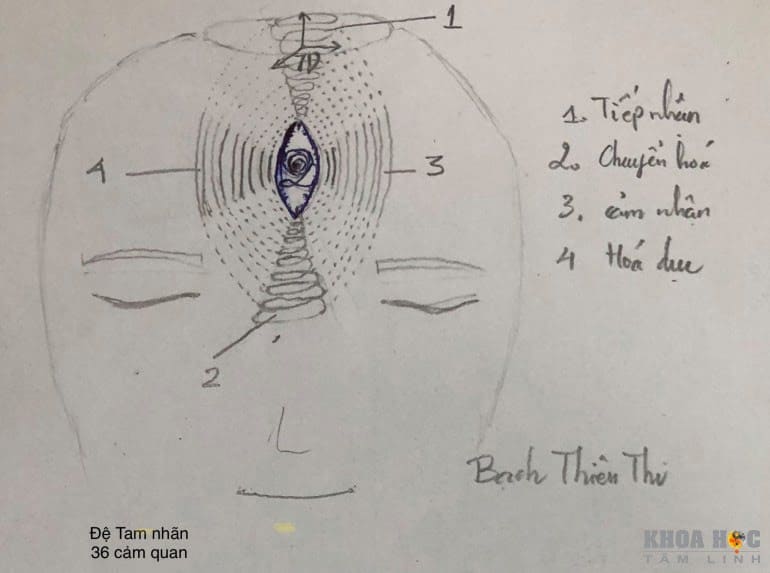 1
1. Tiếp nhận
4
3
2. Chuyển hoá
3. cảm nhận
4 Hoá dục
2
Bạch Thiên Thi
Đệ Tam nhãn
36 cảm quan
KHOA HỌC
TÂM LINH